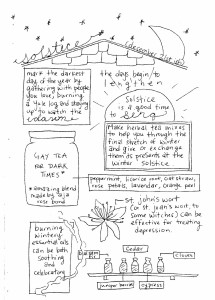 solstice
december 21st
mark the darkest
day of the year by
gathering with people
you love, burning
a yule log and staying
up to watch the
the days begin to
lengthen
solstice
is a good time
to
Make herbal tea mixes
to help you through the
final stretch of winter
and give or exchange
them as presents at the
winter solstice
GAY TEA
FOR DARK
TIMES*
*amazing blend
made by
rose bond
peppermint, licorice root, oat straw,
rose petals, lavender, orange peel
St. John's wort
(or St. Joan's wort, to
some witches) can be
effective for treating
depression.
burning
wintery
essential oils
can be both
soothing
and
celebratory
balsam
cedar
cloves
juniper berries
cypress